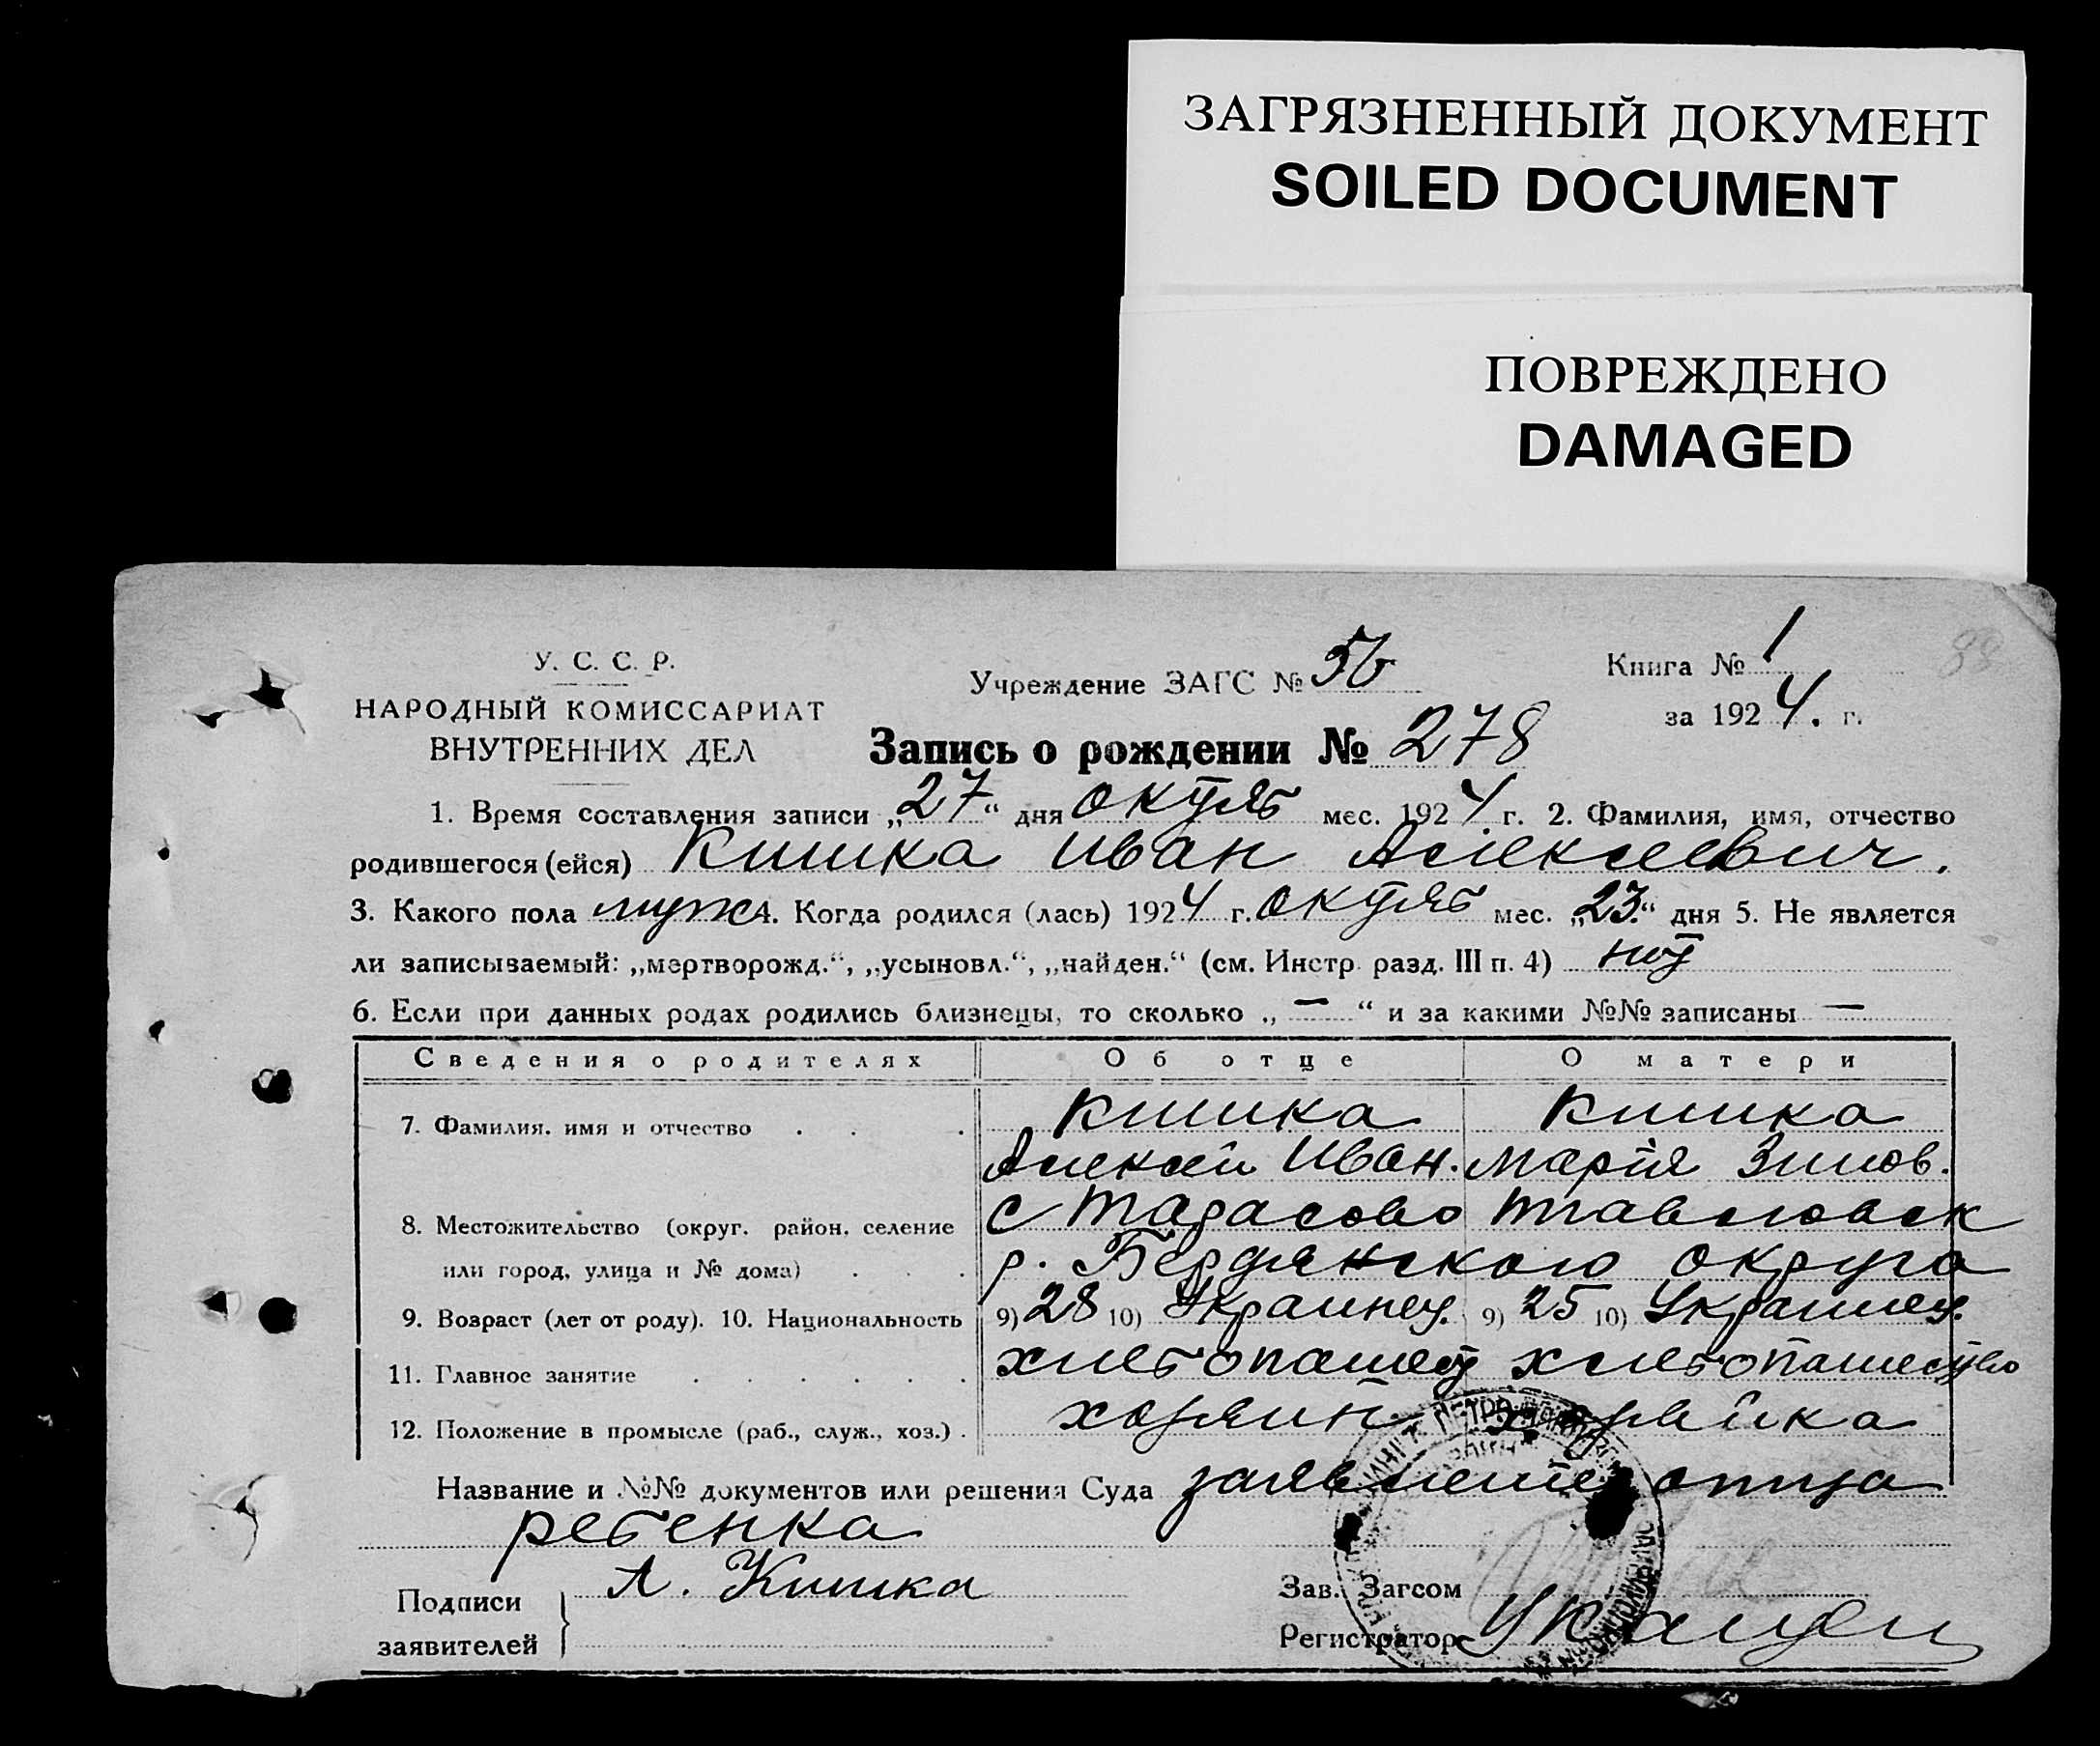 ЗАГРЯЗНЕННЫЙ ДОКУМЕНТ
SOILED DOCUMENT
ПОВРЕЖДЕНО
DAMAGED
88
У. С. С. Р.
НАРОДНЫЙ КОМИССАРИАТ
ВНУТРЕННИХ ДЕЛ
Учреждение ЗАГС № 56
Книга № 1
за 1924. г.
Запись о рождении № 278
1. Время составления записи „27“ дня октяб мес. 1924 г. 2. Фамилия, имя, отчество
родившегося (ейся) Кишка Иван Алексеевич.
3. Какого пола муж 4. Когда родился (лась) 1924 г. октяб мес. „23.“ дня 5. Не является
ли записываемый: „мертворожд.“, „усыновл.“, „найден.“ (см. Инстр. разд. III п. 4) нет
6. Если при данных родах родились близнецы, то сколько „ — “ и за какими №№ записаны —
Сведения о родителях Об отце О матери
7. Фамилия, имя и отчество . . . Кишка Кишка
Алексей Иван. Марія Зинов.
8. Местожительство (округ. район, селение с Тарасово
или город, улица и № дома) . . . р. Бердянского округа
9. Возраст (лет от роду). 10. Национальность 9) 28 10) Украинец. 9) 25 10)
11. Главное занятие . . . . . . хлебопашец хлебопашество
12. Положение в промысле (раб., служ., хоз.) . хозяин хозяйка
Название и №№ документов или решения Суда заявление отца
ребенка
Подписи
заявителей
А. Кишка
Зав. Загсом
Регистратор